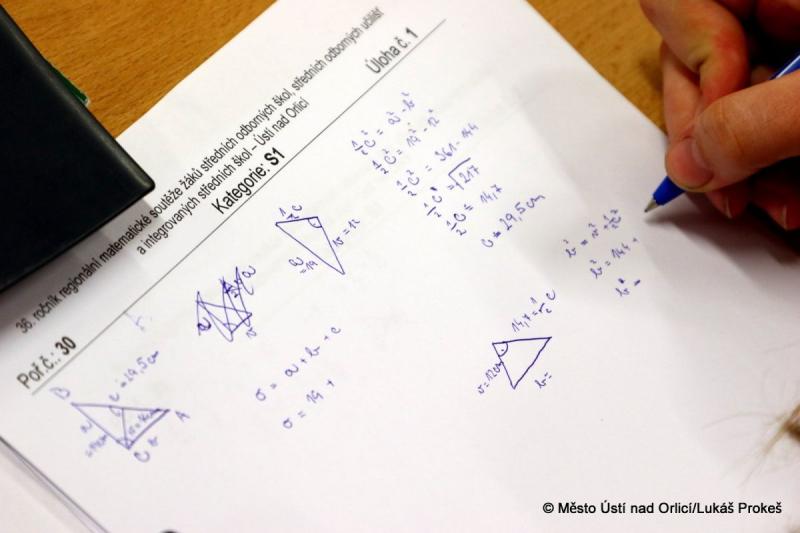 36. ročník regionální matematické soutěže žáků středních odborných škol, středních odborných učilišť
a integrovaných středních škol – Ústí nad Orlicí
Kategorie: S1
Poř.č.: 30
Úloha č. 1
½c² = a² - v²
½c² = 19² - 12²
½c² = 361 - 144
½c = √217
½c = 14,7
c = 29,5 cm
½c
v = 12
a = 19
B
c = 29,5 cm
A
C
o = a + b + c
o = 19 +
14,7 = ½c
v = 12 cm
b =
b² = v² + ½c²
b² = 144 +
b =
© Město Ústí nad Orlicí/Lukáš Prokeš